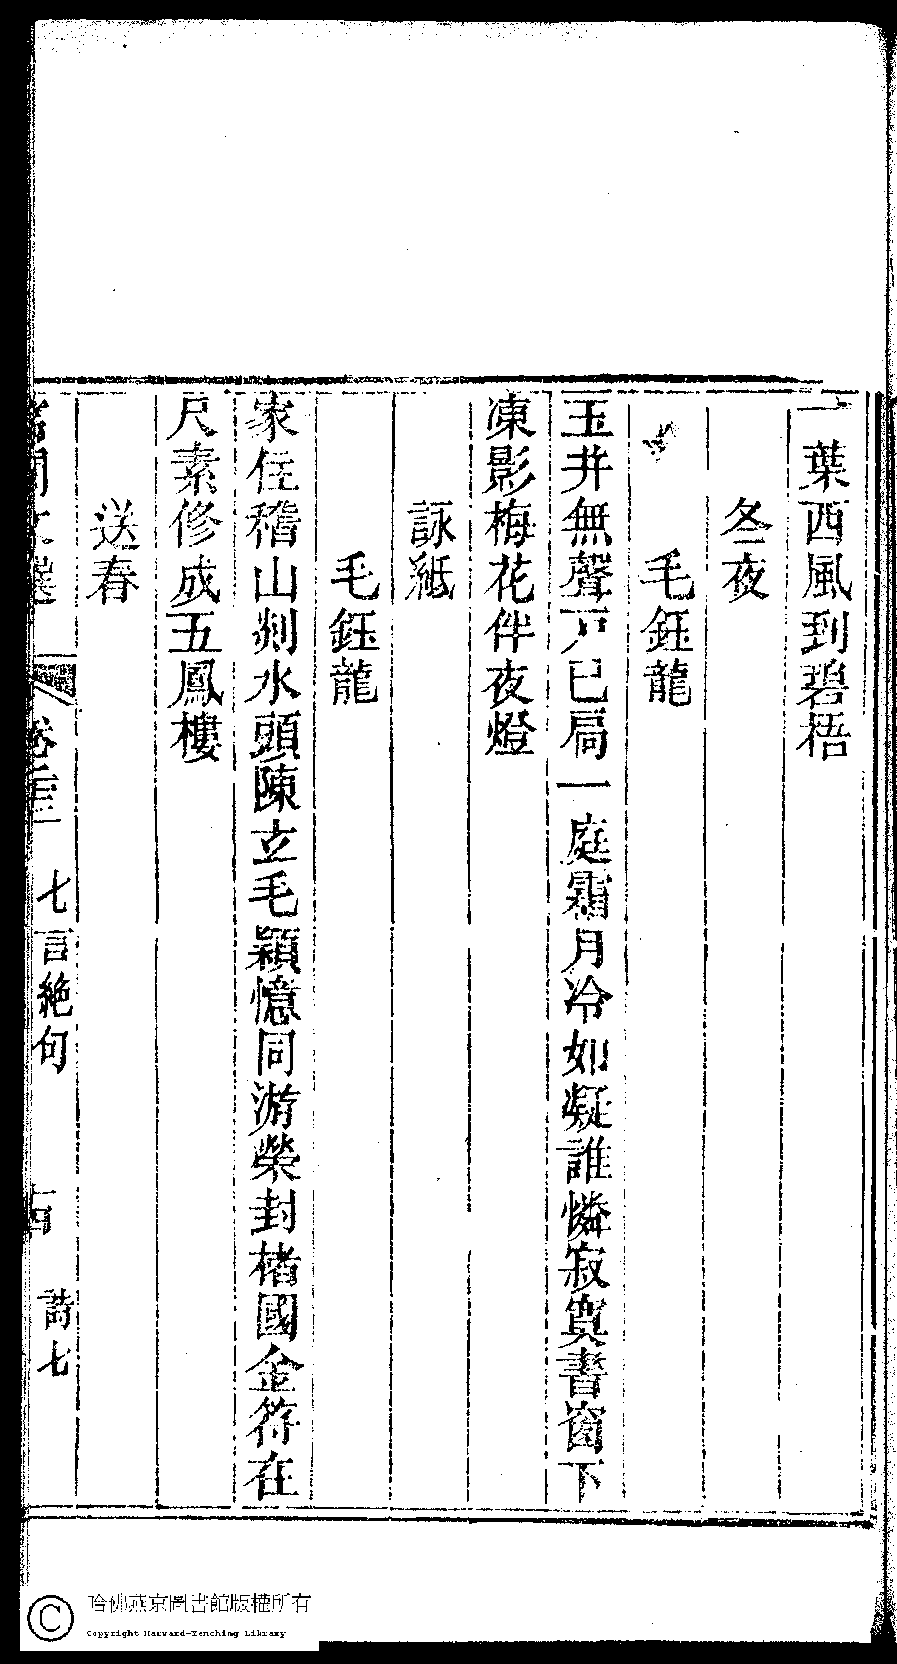 一葉西風到碧梧
冬夜
毛鈺龍
玉井無聲戸已扃一庭霜月冷如凝誰憐寂寞書窗下
凍影梅花伴夜燈
詠紙
毛鈺龍
家住稽山剡水頭陳玄毛穎憶同游榮封楮國金符在
尺素修成五鳳樓
送春
名閨文選 卷三 七言絶句 十四 詩七
哈佛燕京圖書館版權所有
Copyright Harvard-Yenching Library